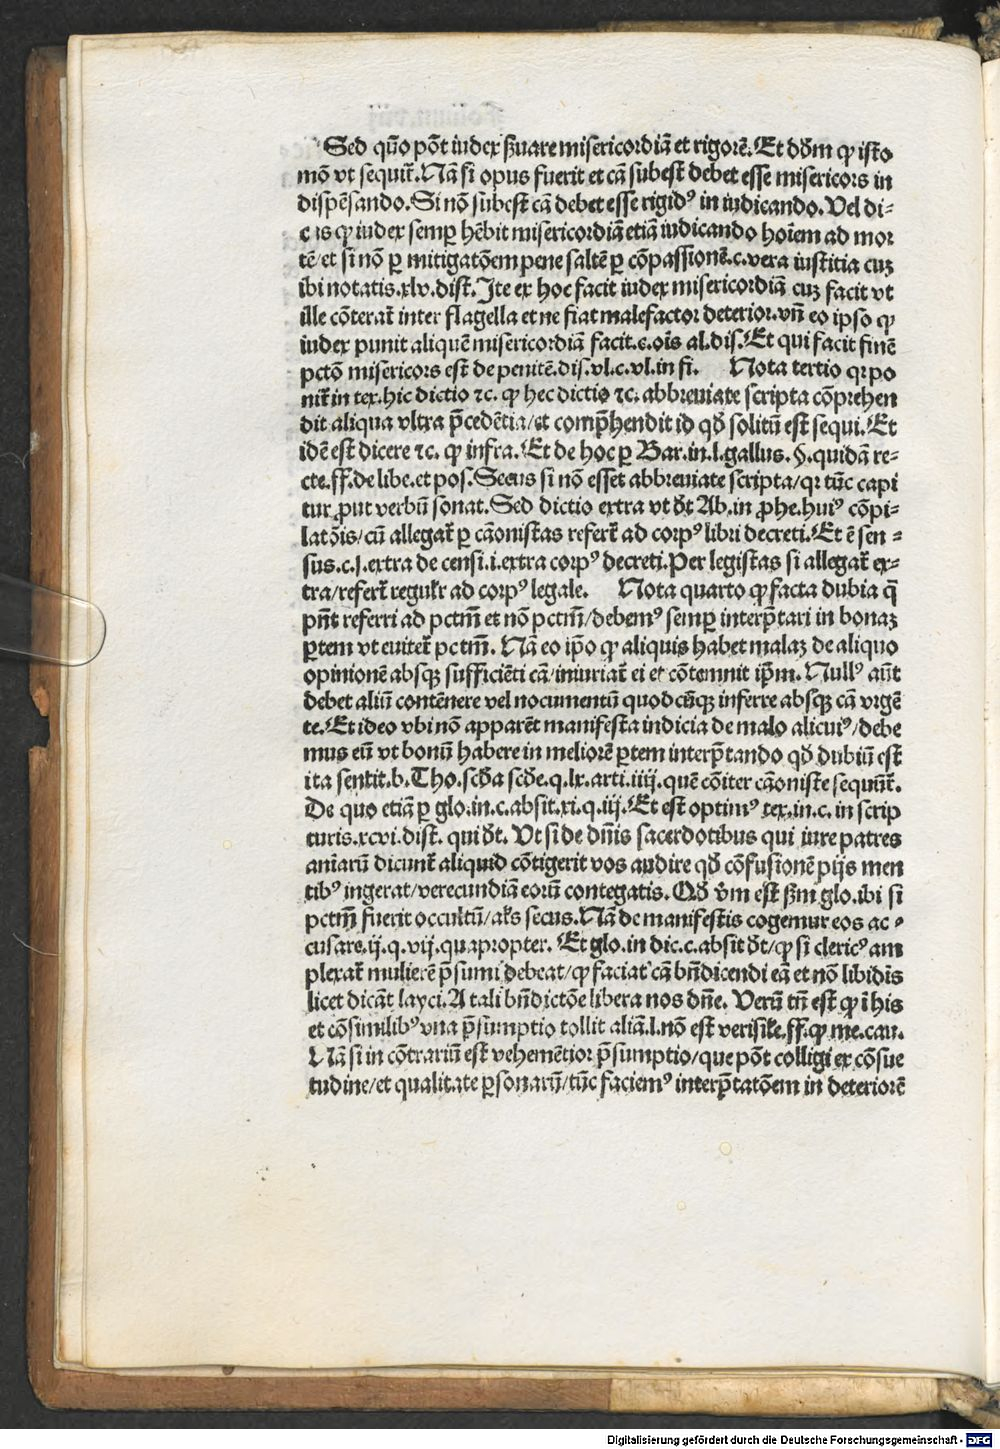 Sed qũo põt iudex ẜuare misericordiã et rigorẽ. Et dõm ꝙ isto
mõ vt sequit̃. Nã si opus fuerit et cã subest̃ debet esse misericors in
dispẽsando. Si nõ subest cã debet esse rigidꝰ in iudicando. Vel di⸗
c is ꝙ iudex semꝑ hẽbit misericordiã etiã iudicando hoĩem ad mor
tẽ/et si nõ ꝑ mitigatõem pene saltẽ ꝑ cõpassionẽ.c.vera iustitia cuꝫ
ibi notatis.xlv.dist. Itẽ ex hoc facit iudex misericordiã cuꝫ facit vt
ille cõterat̃ inter flagella et ne fiat malefactor deterior.vñ eo ipso ꝙ
iudex punit aliquẽ misericordiã facit.c.oĩs al.dis. Et qui facit finẽ
pctõ misericors est de penitẽ.dis.vl.c.vl.in fi. Nota tertio qꝛ po
nit̃ in tex.hic dictio ⁊c. ꝙ hec dictio ⁊c. abbreuiate scripta cõprehen
dit aliqua vltra p̃cedẽtia/et comp̃hendit id qđ solitũ est sequi. Et
idẽ est dicere ⁊c. ꝙ infra. Et de hoc ꝑ Bar.in.l.gallus.§.quidã re⸗
cte.ff.de libe.et pos. Secus si nõ esset abbreuiate scripta/qꝛ tũc capi
tur ꝓut verbũ sonat. Sed dictio extra vt đt Ab.in ꝓhe.huiꝰ cõpi⸗
latõis/cũ allegat̃ ꝑ cãonistas refert̃ ad corpꝰ libri decreti. Et ẽ sen⸗
sus.c.j.extra de censi.i.extra corpꝰ decreti. Per legistas si allegat̃ ex⸗
tra/refert̃ regulr̃ ad corpꝰ legale. Nota quarto ꝙ facta dubia q̃
pñt referri ad pctm̃ et nõ pctm̃/debemꝰ semꝑ interp̃tari in bonaꝫ
ꝑtem vt euitet̃ pctm̃. Nã eo ip̃o ꝙ aliquis habet malaꝫ de aliquo
opinionẽ absqꝫ sufficiẽti cã/iniuriat̃ ei et cõtemnit ip̃m. Nullꝰ aũt
debet aliũ contẽnere vel nocumentũ quodcũqꝫ inferre absqꝫ cã vrgẽ
te. Et ideo vbi nõ apparẽt manifesta indicia de malo alicuiꝰ/debe
mus eũ vt bonũ habere in meliorẽ ꝑtem interp̃tando qđ dubiũ est
ita sentit.b.Tho.scđa scđe.q.lx.arti.iiij.quẽ cõiter cãoniste sequũt̃.
De quo etiã ꝑ glo.in.c.absit.xi.q.iij. Et est optimꝰ tex.in.c. in scrip
turis.xcvi.dist. qui đt. Vt si de dñis sacerdotibus qui iure patres
aniarũ dicunt̃ aliquid cõtigerit vos audire qđ cõfusionẽ pijs men
tibꝰ ingerat/verecundiã eorũ contegatis. Qđ ṽm est ẜm glo.ibi si
pctm̃ fuerit occultũ/als̃ secus. Nã de manifestis cogemur eos ac⸗
cusare.ij.q.vij.quapropter. Et glo.in dic.c.absit đt/ꝙ si clericꝰ am
plexat̃ mulierẽ p̃sumi debeat/ꝙ faciat cã bñdicendi eã et nõ libidĩs
licet dicãt layci. A tali bñdictõe libera nos dñe. Verũ tñ est ꝙ ĩ his
et cõsimilibꝰ vna p̃sumptio tollit aliã.l.nõ est verisiłe.ff.ꝙ me.cau.
Nã si in cõtrariũ est vehemẽtior p̃sumptio/que põt colligi ex cõsue
tudine/et qualitate ꝑsonarũ/tũc faciemꝰ interp̃tatõem in deteriorẽ
Digitalisierung gefördert durch die Deutsche Forschungsgemeinschaft - DFG